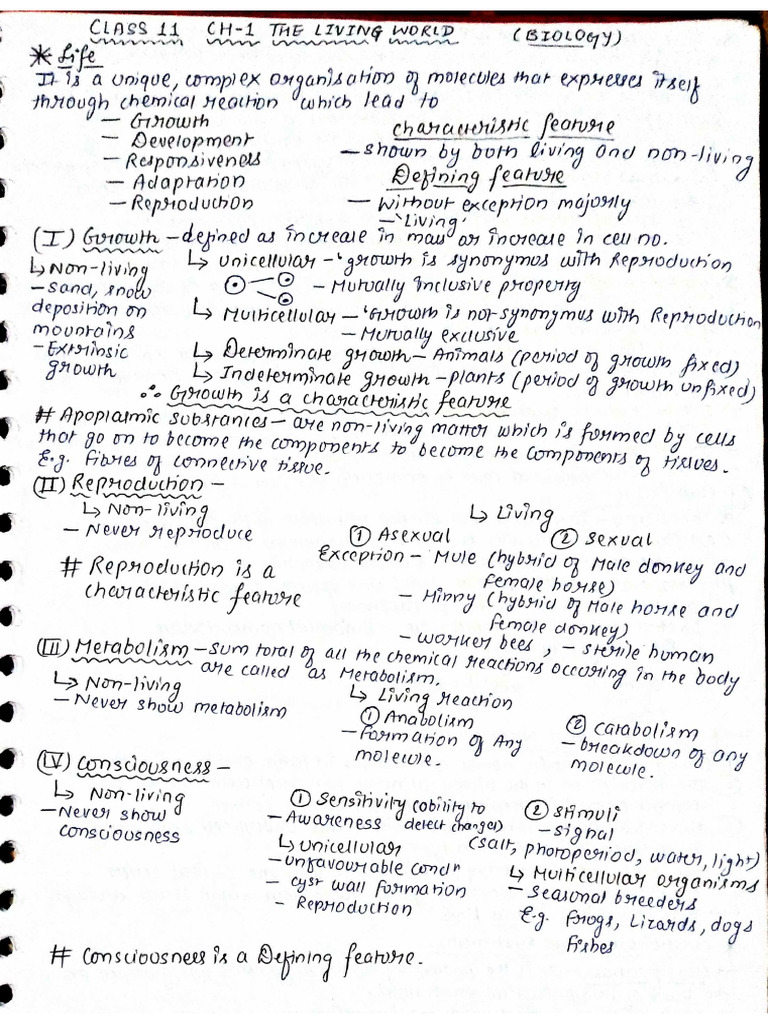 CLASS 11 CH-1 THE LIVING WORLD (BIOLOGY)
* Life
It is a unique, complex organisation of molecules that expresses itself
through chemical reaction which lead to
– Growth
– Development
– Responsiveness
– Adaptation
– Reproduction
characteristic feature
– shown by both living and non-living
Defining feature
– Without exception majorly
– 'Living'
(I) Growth – defined as increase in mass or increase in cell no.
↳ Non-living
– Sand, snow
deposition on
mountains
– Extrinsic
growth
↳ Unicellular – 'growth is synonymus with Reproduction
– Mutually Inclusive property
↳ Multicellular – 'Growth is not synonymus with Reproduction
– Mutually exclusive
↳ Determinate growth – Animals (period of growth fixed)
↳ Indeterminate growth – plants (period of growth unfixed)
∴ Growth is a characteristic feature
# Apoplasmic substances – are non-living matter which is formed by cells
that go on to become the components to become the components of tissues.
E.g. Fibres of connective tissue.
(II) Reproduction –
↳ Non-living
– Never reproduce
# Reproduction is a
characteristic feature
↳ Living
① Asexual ② Sexual
Exception – Mule (hybrid of Male donkey and
female horse)
– Hinny (hybrid of Male horse and
female donkey)
– worker bees, – sterile human
(III) Metabolism – sum total of all the chemical reactions occuring in the body
are called as Metabolism.
↳ Non-living
– Never show metabolism
↳ Living reaction
① Anabolism
– Formation of Any
molecule.
② Catabolism
– breakdown of any
molecule.
(IV) Consciousness –
↳ Non-living
– Never show
consciousness
① Sensitivity (ability to
– Awareness detect changes)
↳ unicellular
– unfavourable condn
– cyst wall formation
– Reproduction
② Stimuli
– signal
(salt, photoperiod, water, light)
↳ Multicellular organisms
– seasonal breeders
E.g. frogs, Lizards, dogs
fishes
# Consciousness is a Defining feature.